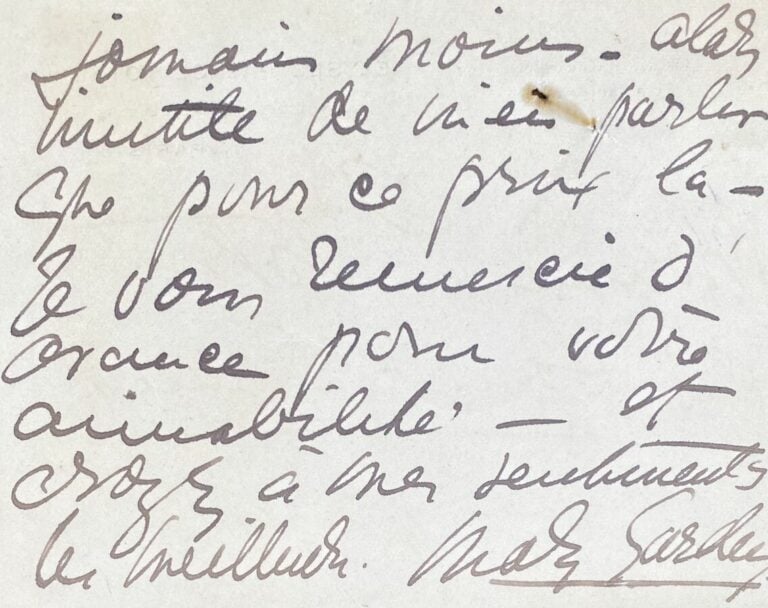 jamais moins - alors
inutile de m'en parler
que pour ce prix là -
Je vous remercie d'
avance pour votre
amabilité - et
croyez à mes sentiments
les meilleurs. Mary Garden